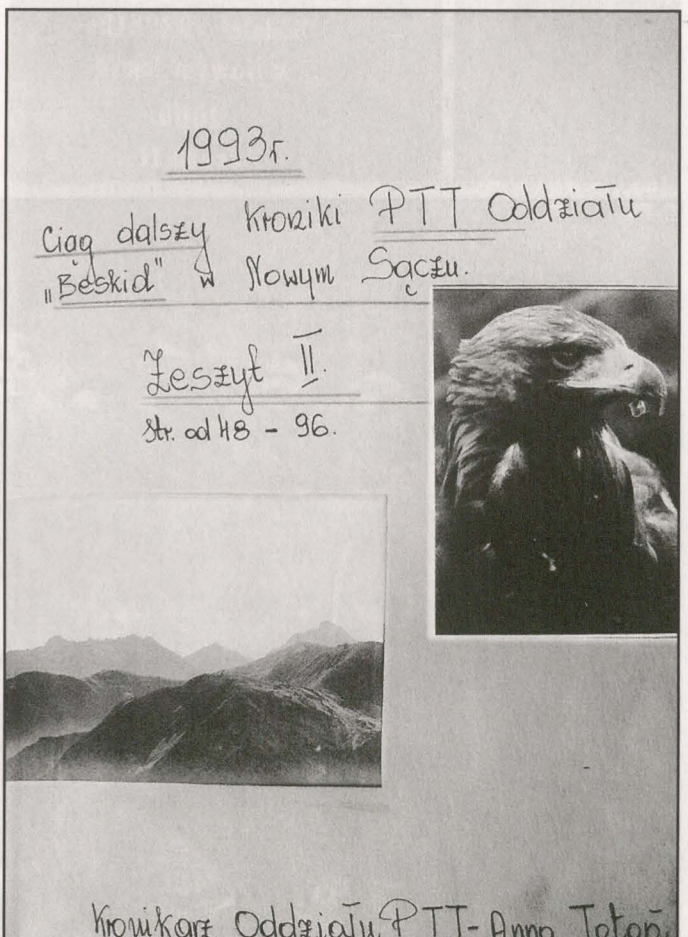 1993r.
Ciąg dalszy Kroniki PTT Oddziału
„Beskid" w Nowym Sączu.
Zeszyt II.
Str. od 48 - 96.
Kronikarz Oddziału PTT - Anna Totoń.